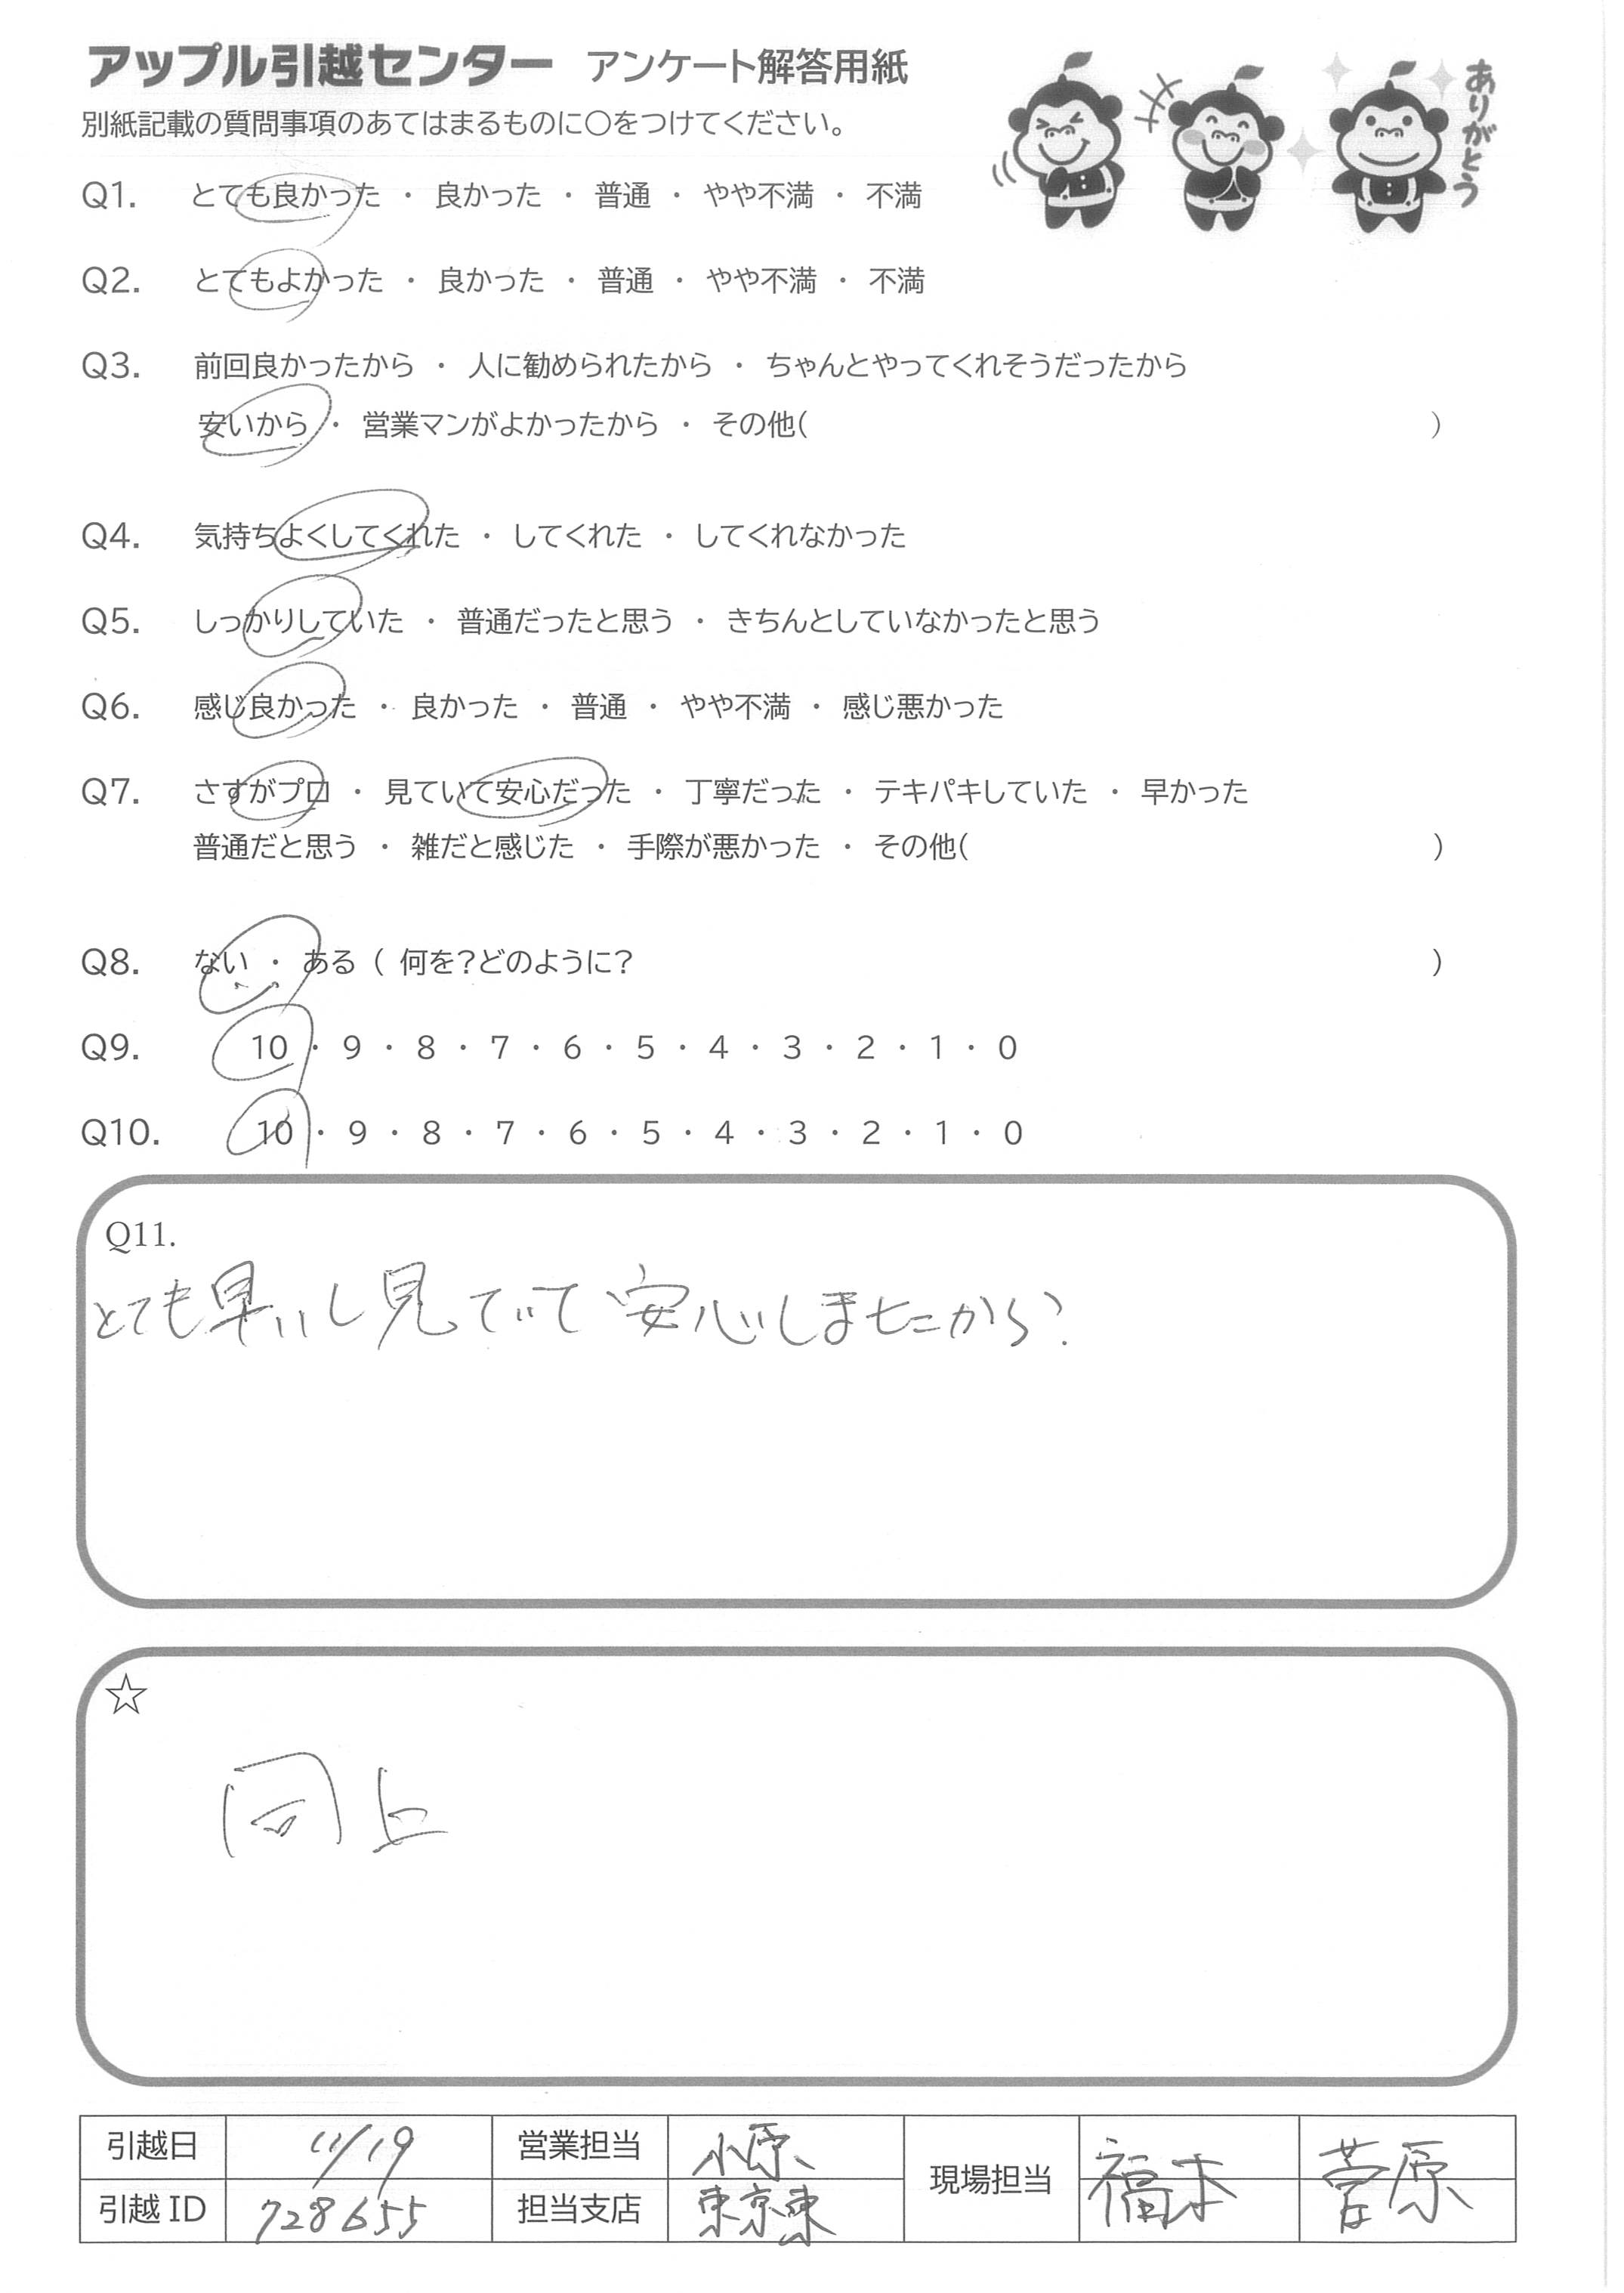 アップル引越センター アンケート解答用紙
ありがとう
別紙記載の質問事項のあてはまるものに〇をつけてください。
Q1. とても良かった ・ 良かった ・ 普通 ・ やや不満 ・ 不満
Q2. とてもよかった ・ 良かった ・ 普通 ・ やや不満 ・ 不満
Q3. 前回良かったから ・ 人に勧められたから ・ ちゃんとやってくれそうだったから
安いから ・ 営業マンがよかったから ・ その他( )
Q4. 気持ちよくしてくれた ・ してくれた ・ してくれなかった
Q5. しっかりしていた ・ 普通だったと思う ・ きちんとしていなかったと思う
Q6. 感じ良かった ・ 良かった ・ 普通 ・ やや不満 ・ 感じ悪かった
Q7. さすがプロ ・ 見ていて安心だった ・ 丁寧だった ・ テキパキしていた ・ 早かった
普通だと思う ・ 雑だと感じた ・ 手際が悪かった ・ その他( )
Q8. ない ・ ある ( 何を?どのように? )
Q9. 10 ・ 9 ・ 8 ・ 7 ・ 6 ・ 5 ・ 4 ・ 3 ・ 2 ・ 1 ・ 0
Q10. 10 ・ 9 ・ 8 ・ 7 ・ 6 ・ 5 ・ 4 ・ 3 ・ 2 ・ 1 ・ 0
Q11.
とても早いし見ていて安心しましたから?
☆
同上
引越日 11/19 営業担当 小原 現場担当 福本 菅原
引越ID 728655 担当支店 東京東